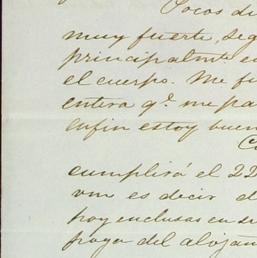 Pocos di
muy fuerte, seg
principalmte en
el cuerpo. Me fu
entera qe. me pa
enfin estoy buen
C
cumplirá el 22
vm es decir d
hoy enclusas en se
pagar del alojam